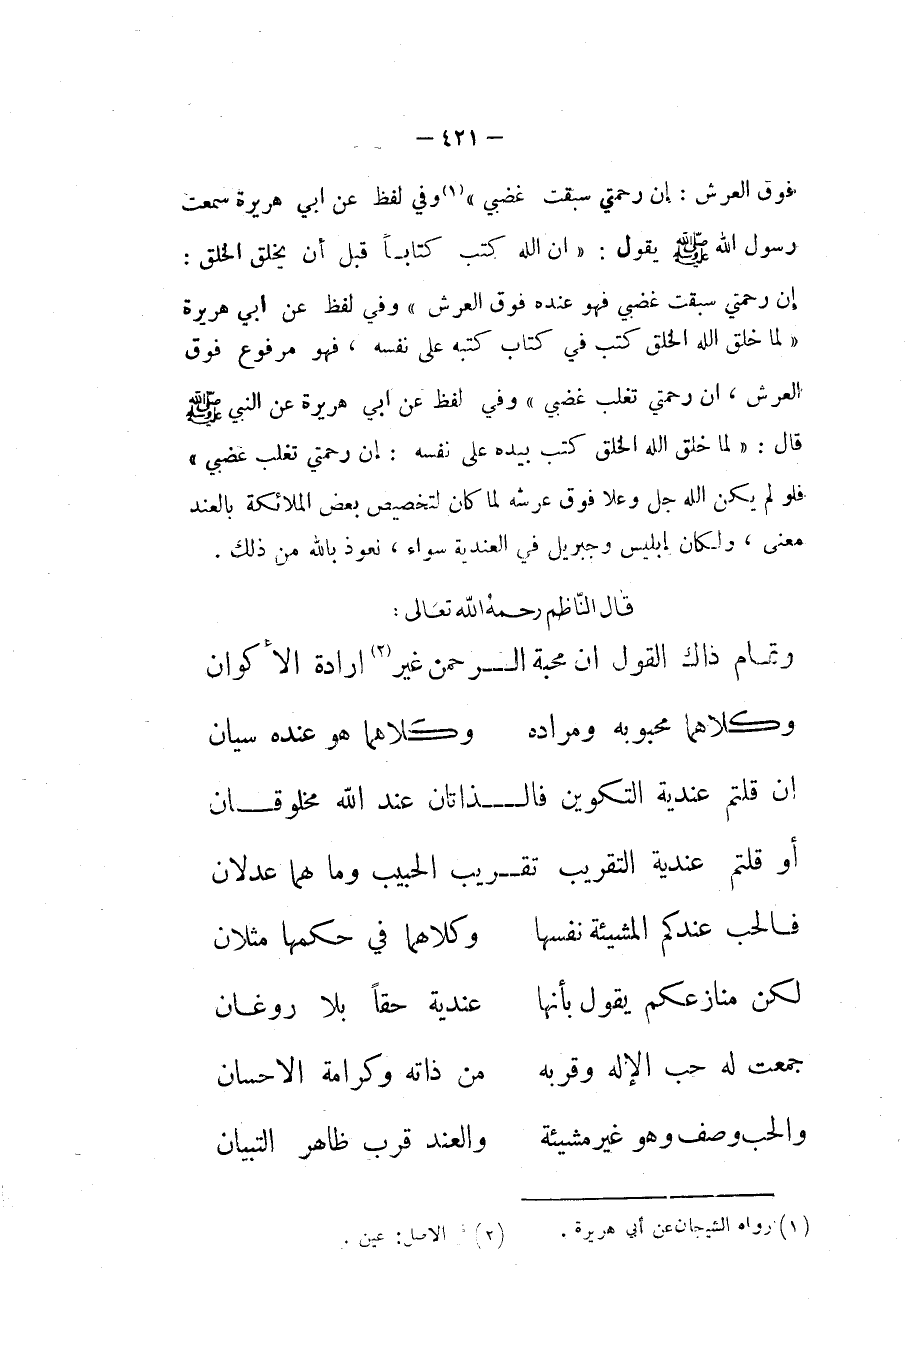 – ٤٢١ –
فوق العرش : إن رحمتي سبقت غضبي »(١) وفي لفظ عن ابي هريرة سمعت
رسول الله ﷺ يقول : « ان الله كتب كتابـاً قبل أن يخلق الخلق :
إن رحمتي سبقت غضبي فهو عنده فوق العرش » وفي لفظ عن ابي هريرة
« لما خلق الله الخلق كتب في كتاب كتبه على نفسه ، فهو مرفوع فوق
العرش ، ان رحمتي تغلب غضبي » وفي لفظ عن ابي هريرة عن النبي ﷺ
قال : « لما خلق الله الخلق كتب بيده على نفسه : إن رحمتي تغلب غضبي »
فلو لم يكن الله جل وعلا فوق عرشه لما كان لتخصيص بعض الملائكة بالعند
معنى ، ولكان إبليس وجبريل في العندية سواء ، نعوذ بالله من ذلك .
قال الناظم رحمه الله تعالى :
وتمام ذاك القول ان محبة الـــرحمن غير(٢) ارادة الأكوان
وكلاهما محبوبه ومراده وكلاهما هو عنده سيان
ان قلتم عندية التكوين فالـــذاتان عند الله مخلوقـــان
أو قلتم عندية التقريب تقـريب الحبيب وما هما عدلان
فـالحب عندكم المشيئة نفسها وكلاهما في حكمها مثلان
لكن منازعكم يقول بأنها عندية حقاً بلا روغـان
جمعت له حب الإله وقربه من ذاته وكرامة الاحسان
والحب وصف وهو غير مشيئة والعند قرب ظاهر التبيان
(١) رواه الشيخان عن أبي هريرة .
(٢) الاصل : عين .